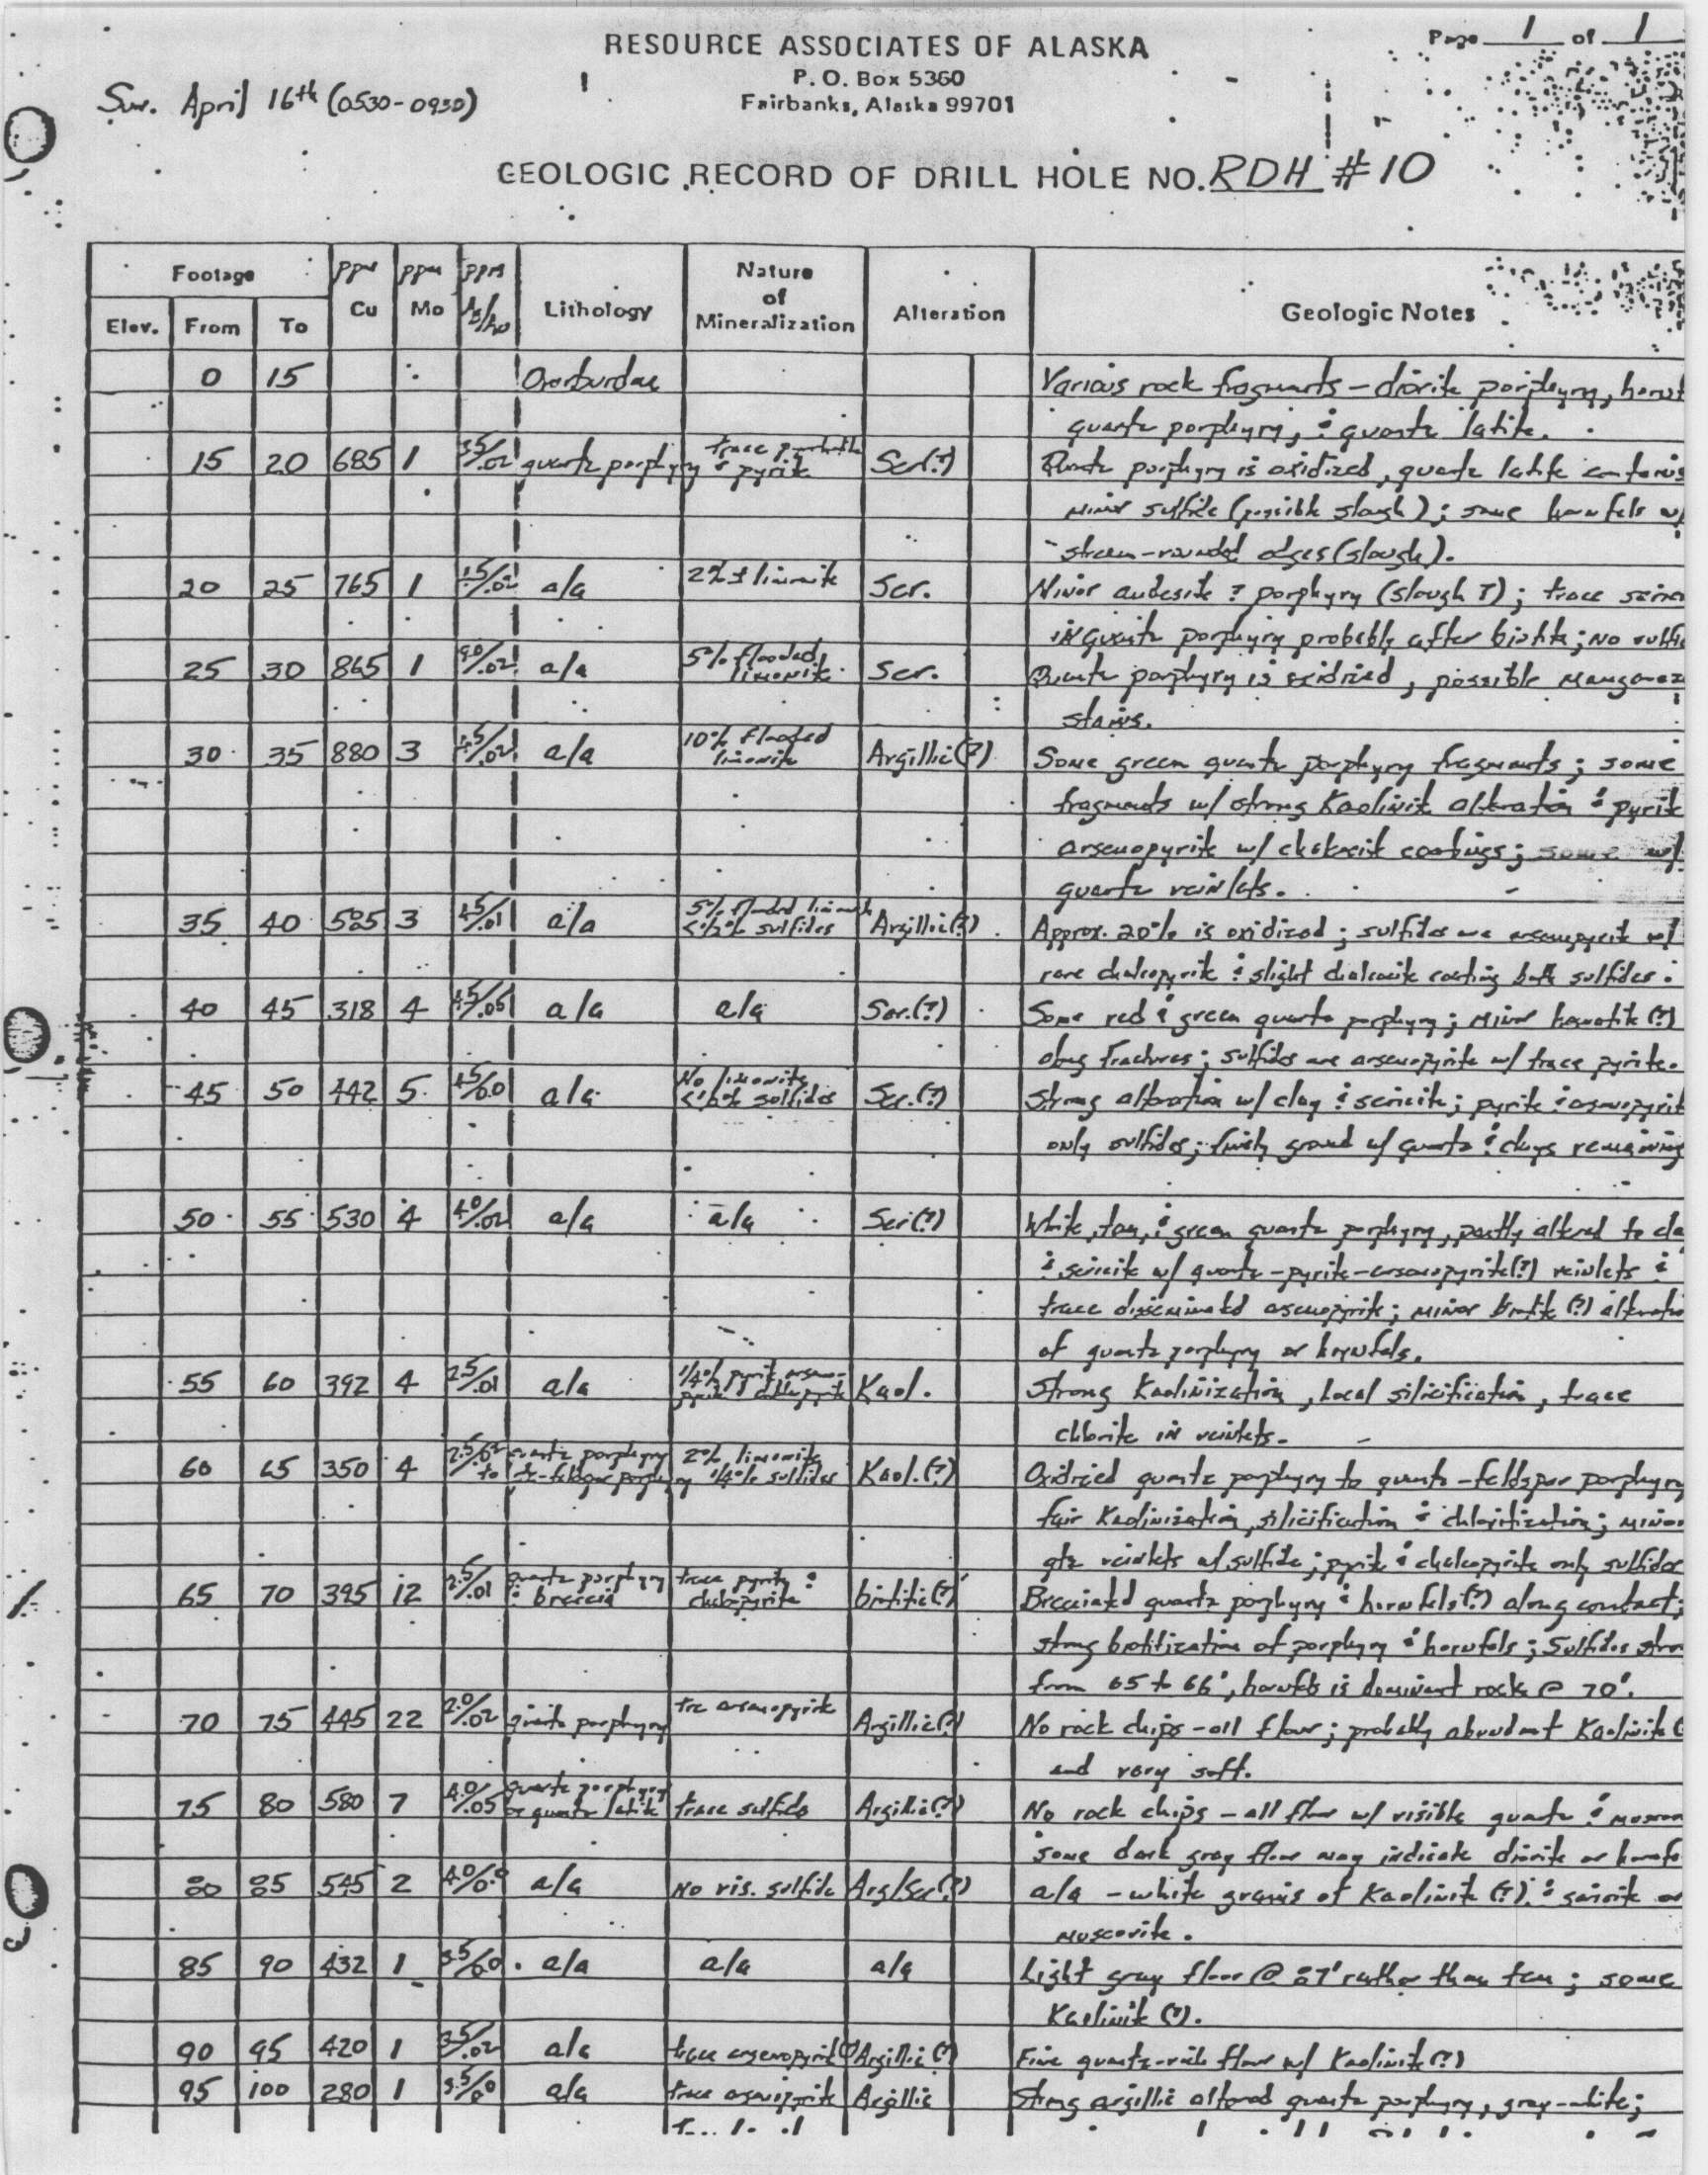 Page 1 of 1
RESOURCE ASSOCIATES OF ALASKA
P. O. Box 5360
Fairbanks, Alaska 99701
Sun. April 16th (0530-0930)
GEOLOGIC RECORD OF DRILL HOLE NO. RDH #10
Footage ppm ppm ppm Nature of Mineralization
Elev. From To Cu Mo Lithology Alteration Geologic Notes
0 15 Overburden Various rock fragments - diorite porphyry,
quartz porphyry, & quartz latite.
15 20 685 1 3.5/.02 quartz porphyry trace & pyrite Ser(?) Quartz porphyry is oxidized, quartz latite contains
minor sulfide (possible slough); some hornfels w/
stream-rounded edges (slough).
20 25 765 1 /.02 a/a 2% ± limonite Ser. Minor andesite ? porphyry (slough ?); trace
in quartz porphyry probably after biotite; no
25 30 865 1 /.02 a/a 5% flooded limonite Ser. Quartz porphyry is oxidized, possible
stains.
30 35 880 3 4.5/.02 a/a 10% flooded limonite Argillic(?) Some green quartz porphyry fragments; some
fragments w/ strong Kaolinite alteration & pyrite
arsenopyrite w/ chalcocite coatings; some w/
quartz veinlets.
35 40 525 3 4.5/.01 a/a 5% flooded limonite <1/2% sulfides Argillic(?) Approx. 20% is oxidized; sulfides are arsenopyrite w/
rare chalcopyrite & slight chalcocite coating both sulfides.
40 45 318 4 4.5/.05 a/a a/a Ser.(?) Some red & green quartz porphyry; minor hematite (?)
along fractures; sulfides are arsenopyrite w/ trace pyrite.
45 50 442 5 4.5/0.0 a/a No limonite <1/2% sulfides Ser.(?) Strong alteration w/ clay & sericite; pyrite & arsenopyrite
only sulfides; finely ground w/ quartz & clays remaining
50 55 530 4 4.0/.02 a/a a/a Ser(?) White, tan, & green quartz porphyry, partly altered to
& sericite w/ quartz-pyrite-arsenopyrite(?) veinlets &
trace disseminated arsenopyrite; minor biotite (?)
of quartz porphyry or hornfels.
55 60 392 4 2.5/.01 a/a 1/4% pyrite, arsenopyrite & chalcopyrite Kaol. Strong Kaolinization, local silicification, trace
chlorite in veinlets.
60 65 350 4 2.5/.02 quartz porphyry to qtz-feldspar porphyry 2% limonite 1/4% sulfides Kaol.(?) Oxidized quartz porphyry to quartz-feldspar porphyry
fair Kaolinization, silicification & chloritization; minor
qtz veinlets w/ sulfide; pyrite & chalcopyrite only sulfides
65 70 395 12 2.5/.01 quartz porphyry & breccia trace pyrite & chalcopyrite biotitic(?) Brecciated quartz porphyry & hornfels(?) along contact;
strong biotitization of porphyry & hornfels; Sulfides
from 65 to 66', hornfels is dominant rock @ 70'.
70 75 445 22 2.0/.02 quartz porphyry trc arsenopyrite Argillic(?) No rock chips - all flour; probably abundant Kaolinite
and very soft.
75 80 580 7 4.0/.05 quartz porphyry or quartz latite trace sulfide Argillic(?) No rock chips - all flour w/ visible quartz &
some dark gray flour may indicate diorite or
80 85 545 2 4.0/0.0 a/a No vis. sulfide Arg/Ser(?) a/a - white grains of Kaolinite (?) & sericite or
muscovite.
85 90 432 1 3.5/0.0 a/a a/a a/a Light gray flour @ 87' rather than tan; some
Kaolinite (?).
90 95 420 1 3.5/.02 a/a trace arsenopyrite(?) Argillic(?) Fine quartz-rich flour w/ Kaolinite(?)
95 100 280 1 3.5/0.0 a/a trace arsenopyrite Argillic Strong argillic altered quartz porphyry, gray-white;